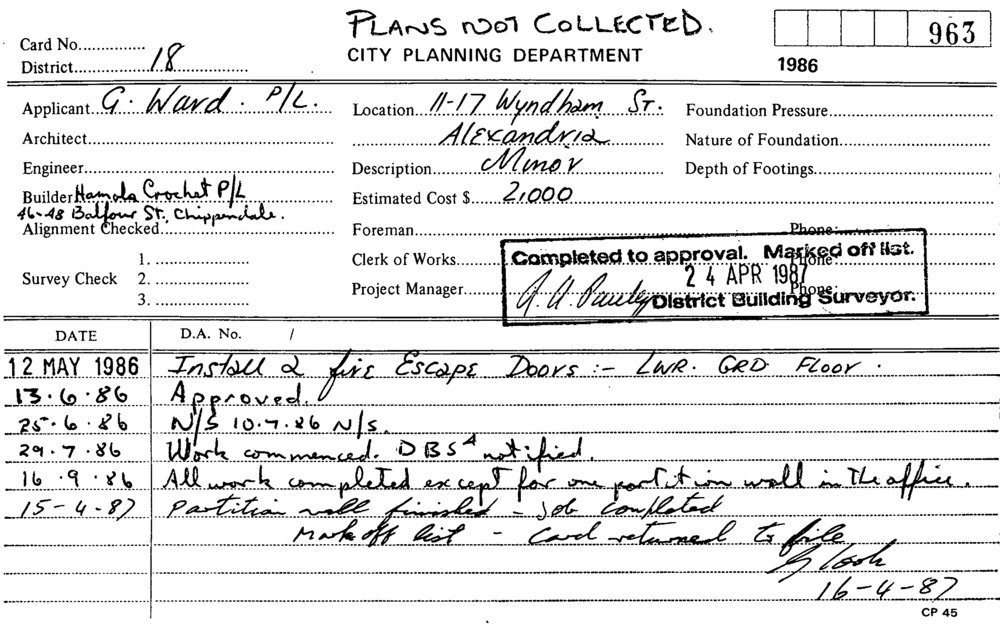 PLANS NOT COLLECTED.
Card No.
CITY PLANNING DEPARTMENT
963
District 18
1986
Applicant G. Ward. P/L.
Location 11-17 Wyndham St.
Foundation Pressure
Architect
Alexandria
Nature of Foundation
Engineer
Description Minor
Depth of Footings
Builder Hamola Crochet P/L
Estimated Cost $ 2,000
46-48 Balfour St, Chippendale.
Alignment Checked
Foreman
Phone:
Survey Check
1.
2.
3.
Clerk of Works
Phone:
Project Manager
Phone:
Completed to approval. Marked off list.
24 APR 1987
District Building Surveyor.
DATE
D.A. No. /
12 MAY 1986 Install 2 fire Escape Doors :- LWR. GRD. FLOOR.
13.6.86 Approved.
25.6.86 N/S 10.7.86 N/S.
29.7.86 Work commenced. DBS 4 notified.
16.9.86 All work completed except for one partition wall in the office.
15-4-87 Partition wall finished - Job Completed
Mark off list - Card returned to file
16-4-87
CP 45